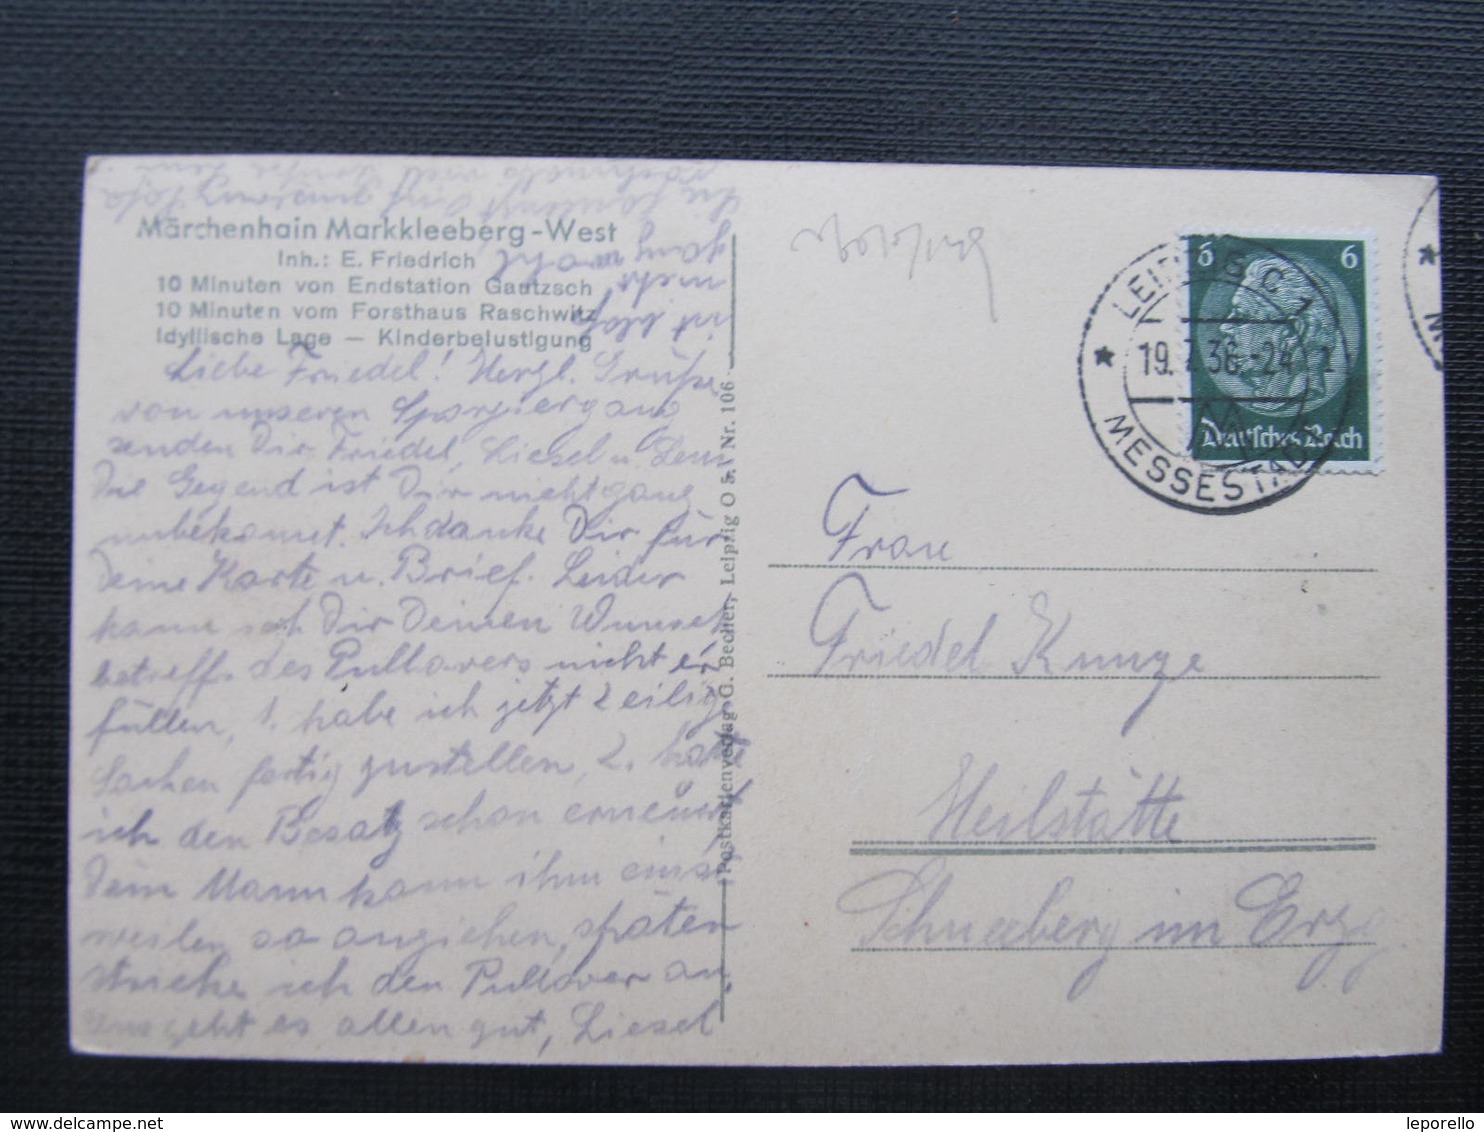 Märchenhain Markkleeberg-West
Inh.: E. Friedrich
10 Minuten von Endstation Gautzsch
10 Minuten vom Forsthaus Raschwitz
Idyllische Lage — Kinderbelustigung
Liebe Friedel! Herzl. Grüße
von unserem Spaziergang
senden Dir Friedel, Liesel u.
Die Gegend ist Dir nicht ganz
unbekannt. Ich danke Dir für
Deine Karte u. Brief. Leider
kann ich Dir Deinen Wunsch
betreff. des Pullovers nicht er
füllen, 1. habe ich jetzt 2 eilig
Sachen fertig zustellen, 2. hatte
ich den Besatz schon erneuert
Dein Mann kann ihm einst
weilen so anziehen, später
stricke ich den Pullover an.
Uns geht es allen gut, Liesel
ist bloß
nicht
ganz
wohl
Postkartenverlag G. Becher, Leipzig O 5. Nr. 106
LEIPZIG C 1
19. 7. 36.-24
MESSESTADT
6 6
Deutsches Reich
Frau
Friedel Kunze
Heilstätte
Schneeberg im Erzg
leporello